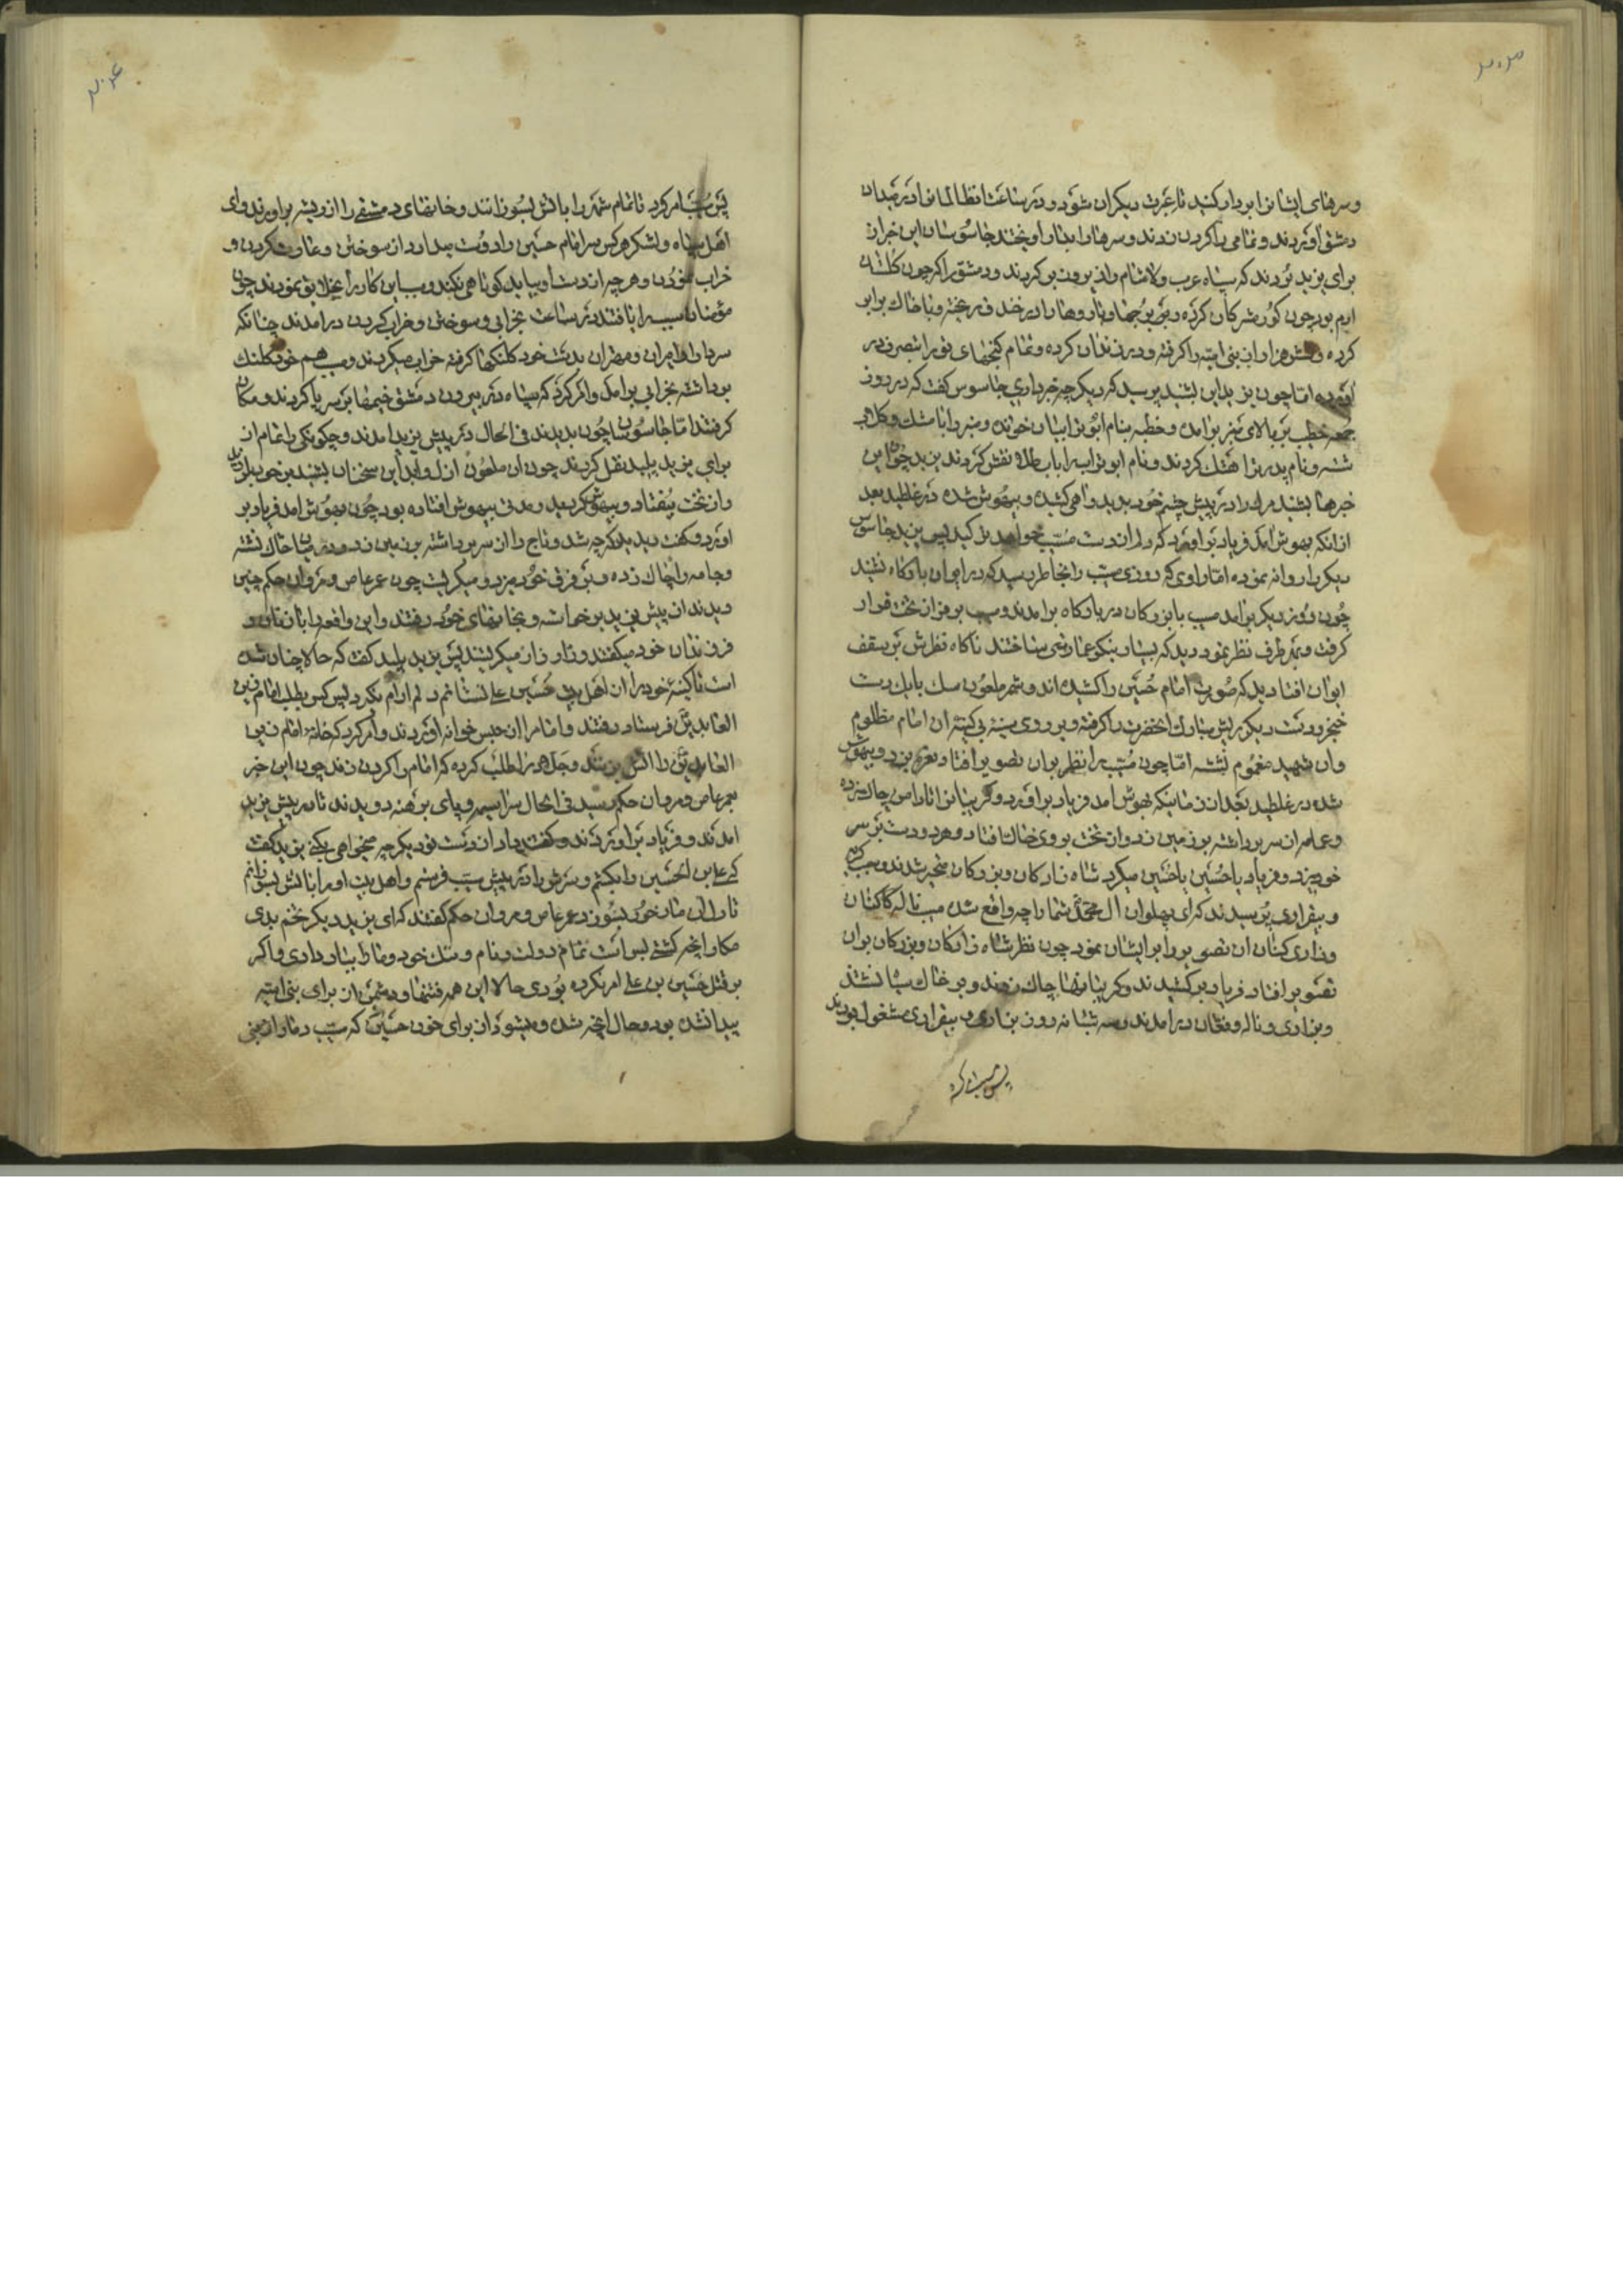 ۲۰۳
و سرهای ایشانرا بردار کنید تا عبرت دیکران شود و در ساعت انظالمانرا در میدان
دمشق اوردند و تمامی را کردن زدند و سرها را بدار اویختند جاسوسان این خبر از
برای یزید بردند که سپاه عرب ولا شام را زیر و زبر کردند و دمشق را که چون کلستان
ارم بود چون کور مشرکان کرده و برجها و باروها را در خندق ریخته و با خاک برابر
کرده و هزاران بنی امیه را کرفته و در زندان کرده و تمام کنجهای تورا بتصرف در
اورده اما چون یزید این بشنید پرسید که دیکر چه خبر داری جاسوس کفت که در روز
جمعه خطیب بر بالای منبر برامده و خطبه بنام ابوتراب خوانده و منبر را با مشک و کلاب
شسته و نام پدر ترا هتک کردند و نام ابوتراب را باب طلا نقش کردند یزید چون این
خبرها بشنید مرک را در پیش چشم خود بدید و اهی کشید و بیهوش شده در غلطید بعد
از انکه بهوش امد فریاد براورد که مرا از دست مسیب خواهد کید پس یزید جاسوس
دیکر را روانه نموده اما راوی کوید روزی مسیب را بخاطر رسید که در ایوان بارکاه نشیند
چون روز دیکر برامد مسیب با بزرکان در بارکاه برامدند و مسیب بر فراز تخت قرار
کرفت و بهر طرف نظر نمود دید که بسیار نیکو عمارتی ساختند ناکاه نظرش بر سقف
ایوان افتاد دید که صورت امام حسین را کشیده اند و شمر ملعون سک بابک دست
خنجر و دست دیکر ریش مبارک انحضرت را کرفته و بر روی سینه بی کینه ان امام مظلوم
وان شهید مغموم نشسته اما چون مسیب را نظر بران تصویر افتاد نعره بزد و بیهوش
شده در غلطید بعد از زمانیکه بهوش امد فریاد براورد و کریبانرا تا دامن چاک زده
و عمامه از سر برداشته بر زمین زد و از تخت بروی خاک افتاد و هر دو دست بر سر
خود میزد و فریاد یا حسین یا حسین میکرد شاه زادکان و بزرکان متحیر شدند و بعجب کریه
و بیقراری پرسیدند که ای پهلوان ال محمد شما را چه واقع شد مسیب ناله کنان
و زاری کنان ان تصویر را بایشان نمود چون نظر شاه زادکان و بزرکان بران
تصویر افتاد فریاد برکشیدند و کریبانها چاک زدند و بر خاک سیاه نشستند
و بزاری و ناله و فغان درامدند و سه شبانه روز بزاری و بیقراری مشغول بودند
پس مسیب امر کرد
۲۰۴
پس مسیب امر کرد تا تمام شهر را باتش بسوزانند و خانهای دمشقی را از ریشه براورند و ای
اهل سپاه و لشکر هرکس مرا و امام حسین را دوست میدارد از سوختن و غارت کردن و
خراب نمودن و هر چه از دست او بیاید کوتاهی نکند و مسیب این کار را بخلایق نمودند چون
مؤمنان مسیب را یافتند در ساعت بخرابی و سوختن و خراب کردن درامدند چنانکه
سرداران و امیران و مهتران بدست خود کلنکها کرفته خراب میکردند و مسیب هم خود کلنک
برداشته بخرابی برامد و امر کرد که سپاه در بیرون دمشق خیمها بر سر پا کردند و مکان
کرفتند اما جاسوسان چون بدیدند فی الحال در پیش یزید امدند و چکونکی را تمام از
برای یزید پلید نقل کردند چون ان ملعون ازل و ابد این سخنان بشنید بر خود بلرزید
و از تخت بیفتاد و بیهوش کردید و مدتی بیهوش افتاده بود چون بهوش امد فریاد بر
اورد و کفت دیدید که چه شد و تاج را از سر برداشته بر زمین زد و در میان خاک نشسته
و جامه را چاک زده و بر فرق خود میزد و میکریست چون عمر عاص و مروان حکم چنین
دیدند از پیش یزید برخاسته و بخانهای خود رفتند و این واقعه را با زنان و
فرزندان خود میکفتند و زار زار میکریستند پس یزید پلید کفت که حالا چنان شده
است تا کینه خود را از اهل بیت حسین علی نستانم دلم ارام نکیرد پس کس بطلب امام زین
العابدین فرستاد رفتند و امام را از حبس خوانه اوردند و امر کرد که خانه امام زین
العابدین را اتش بزنند و جلاد را طلب کرده که امام را کردن زند چون این خبر
بعمر عاص و مروان حکم رسید فی الحال سراسیمه و پای برهنه دویدند تا در پیش یزید
امدند و فریاد براوردند و کفتند یزید از دست تو دیکر چه میخواهی بکنی یزید کفت
که علی بن الحسین را بکشم و سرش را در پیش مسیب فرستم و اهل بیت او را باتش بسوزانم
تا دل ان مادر خود بسوزد عمر عاص و مروان حکم کفتند که ای یزید دیکر تخم بدی
مکار انچه کشتی بس است تمام دولت و نام و ننک خود و ما را بباد دادی و اکر
بر قتل حسین بن علی امر نکرده بودی حالا این همه فتنها و دشمن از برای بنی امیه
پیدا نشده بود و حال انچه شده و میشود از برای خون حسین که مسیب دمار از بنی